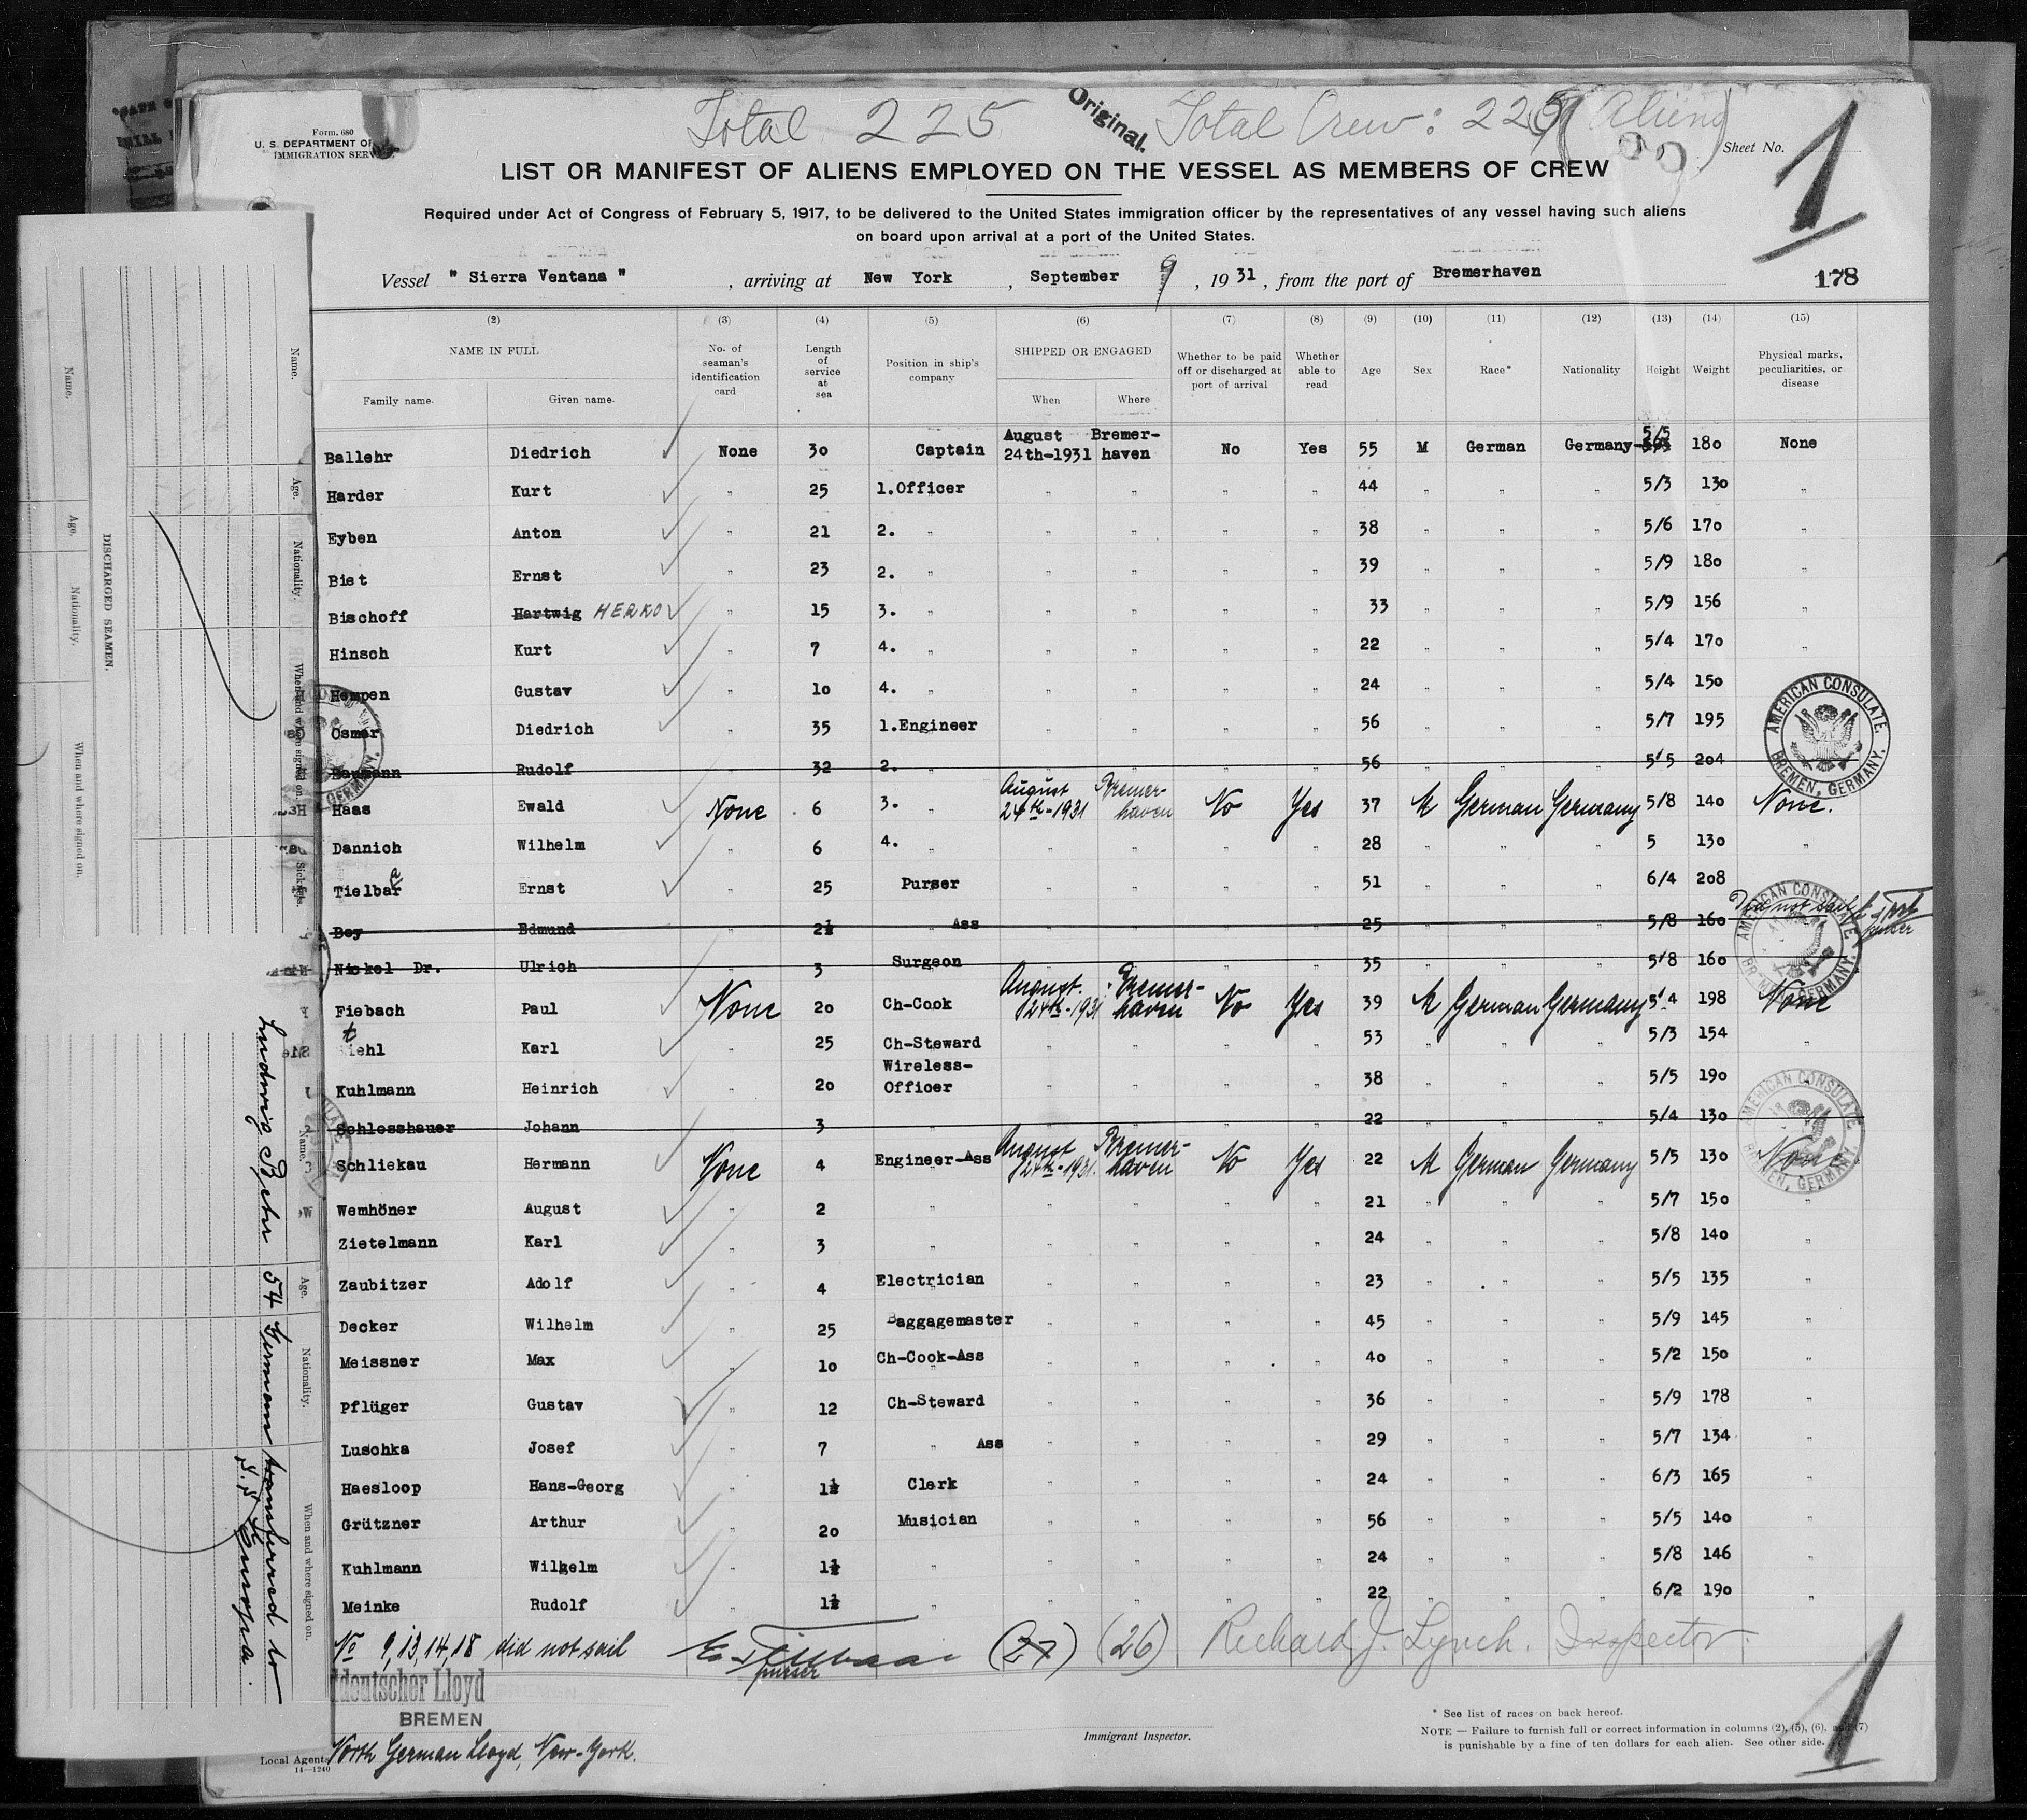 Total 225 Original. Total Crew: 225 (Aliens)
Form. 680
U. S. DEPARTMENT OF
IMMIGRATION SERV
Sheet No. 1
LIST OR MANIFEST OF ALIENS EMPLOYED ON THE VESSEL AS MEMBERS OF CREW
Required under Act of Congress of February 5, 1917, to be delivered to the United States immigration officer by the representatives of any vessel having such aliens
on board upon arrival at a port of the United States.
Vessel " Sierra Ventana " , arriving at New York , September 9 , 1931 , from the port of Bremerhaven
178
(2) (3) (4) (5) (6) (7) (8) (9) (10) (11) (12) (13) (14) (15)
NAME IN FULL
Family name. Given name.
No. of seaman's identification card
Length of service at sea
Position in ship's company
SHIPPED OR ENGAGED
When Where
Whether to be paid off or discharged at port of arrival
Whether able to read
Age
Sex
Race*
Nationality
Height
Weight
Physical marks, peculiarities, or disease
Ballehr Diedrich None 30 Captain August 24th-1931 Bremer-haven No Yes 55 M German Germany 5/5 180 None
Harder Kurt " 25 1.Officer " " " " 44 " " " 5/3 130 "
Eyben Anton " 21 2. " " " " " 38 " " " 5/6 170 "
Biet Ernst " 23 2. " " " " " 39 " " " 5/9 180 "
Bischoff Hartwig HERKO " 15 3. " " " " " 33 " " " 5/9 156 "
Hinsch Kurt " 7 4. " " " " " 22 " " " 5/4 170 "
Hempen Gustav " 10 4. " " " " " 24 " " " 5/4 150 "
Osmer Diedrich " 35 1.Engineer " " " " 56 " " " 5/7 195 "
Baumann Rudolf " 32 2. " " " " " 56 " " " 5/5 204
Haas Ewald None 6 3. " August 24th-1931 Bremer-haven No Yes 37 M German Germany 5/8 140 None.
Dannich Wilhelm " 6 4. " " " " " 28 " " " 5 130 "
Tielbar a Ernst " 25 Purser " " " " 51 " " " 6/4 208
Boy Edmund " 2½ " Ass " " " " 25 " " " 5/8 160 Did not sail
Nickel Dr. Ulrich " 3 Surgeon " " " " 35 " " " 5/8 160
Fiebach Paul None 20 Ch-Cook August 24th-1931 Bremer-haven No Yes 39 M German Germany 5/4 198 None
t iehl Karl " 25 Ch-Steward " " " " 53 " " " 5/3 154 "
Kuhlmann Heinrich " 20 Wireless-Officer " " " " 38 " " " 5/5 190
Schlosshauer Johann " 3 " " " " " 22 " " " 5/4 130
Schliekau Hermann None 4 Engineer-Ass August 24th-1931. Bremer-haven No Yes 22 M German Germany 5/5 130 None
Wemhöner August " 2 " " " " " 21 " " " 5/7 150 "
Zietelmann Karl " 3 " " " " " 24 " " " 5/8 140 "
Zaubitzer Adolf " 4 Electrician " " " " 23 " " " 5/5 135 "
Decker Wilhelm " 25 Baggagemaster " " " " 45 " " " 5/9 145 "
Meissner Max " 10 Ch-Cook-Ass " " " " 40 " " " 5/2 150 "
Pflüger Gustav " 12 Ch-Steward " " " " 36 " " " 5/9 178 "
Luschka Josef " 7 " Ass " " " " 29 " " " 5/7 134 "
Haesloop Hans-Georg " 1½ Clerk " " " " 24 " " " 6/3 165 "
Grützner Arthur " 20 Musician " " " " 56 " " " 5/5 140 "
Kuhlmann Wilgelm " 1½ " " " " " 24 " " " 5/8 146 "
Meinke Rudolf " 1½ " " " " " 22 " " " 6/2 190 "
AMERICAN CONSULATE.
BREMEN, GERMANY.
AMERICAN CONSULATE
GERMANY.
AMERICAN CONSULATE
BREMEN, GERMANY.
No 9, 13, 14, 18 did not sail E. Tielbaar (27) (26) Richard J. Lynch. Inspector.
purser
ddeutscher Lloyd
BREMEN
Local Agents North German Lloyd, New-York.
14—1240
Immigrant Inspector.
* See list of races on back hereof.
NOTE — Failure to furnish full or correct information in columns (2), (5), (6), and (7)
is punishable by a fine of ten dollars for each alien. See other side.
1
DISCHARGED SEAMEN.
Name. Age. Nationality. When and where signed on.
Name. Age. Nationality. When and where signed on. Sick
Name. Age. Nationality. When and where signed on.
Ludwig Behr 54 German transferred to
S.S. Europa.